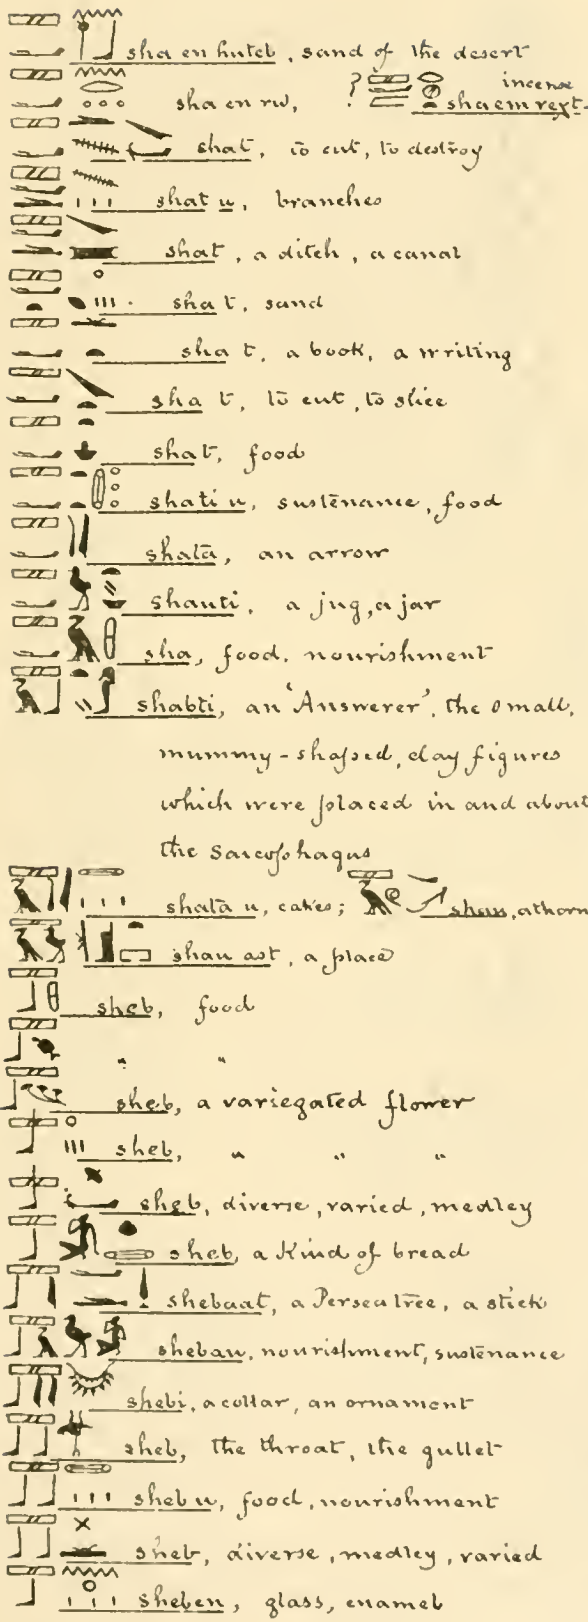 sha en huteb, sand of the desert
sha en rw, ? shaemrext incense
shat, to cut, to destroy
shat u, branches
shat, a ditch, a canal
sha t, sand
sha t, a book, a writing
sha t, to cut, to slice
shat, food
shati u, sustenance, food
shatā, an arrow
shauti, a jug, a jar
sha, food, nourishment
shabti, an 'Answerer', the small,
mummy-shaped, clay figures
which were placed in and about
the sarcophagus
shatā u, cakes; shau, a thorn
shau ast, a place
sheb, food
" "
sheb, a variegated flower
sheb, " " "
sheb, diverse, varied, medley
sheb, a kind of bread
shebaat, a Persea tree, a stick
shebau, nourishment, sustenance
shebi, a collar, an ornament
sheb, the throat, the gullet
sheb u, food, nourishment
sheb, diverse, medley, varied
sheben, glass, enamel